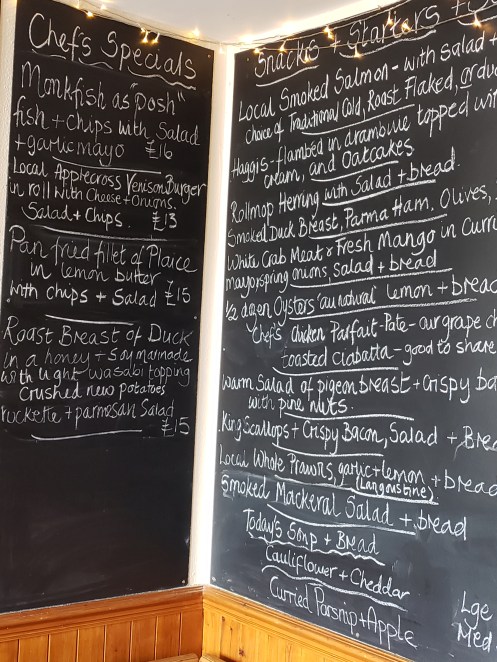 Chef's Specials
Monkfish as "posh"
fish + chips with Salad
+ garlic mayo £16
Local Applecross Venison Burger
in roll with Cheese + Onions.
Salad + Chips. £13
Pan fried fillet of Plaice
in lemon butter
with chips + Salad £15
Roast Breast of Duck
in a honey + soy marinade
with light wasabi topping
Crushed new potatoes
ruckette + parmosan Salad
£15
Snacks + Starters
Local Smoked Salmon - with Salad +
Choice of Traditional Cold, Roast Flaked, or
Haggis - flambed in drambuie topped with
cream, and Oatcakes.
Rollmop Herring with Salad + bread.
Smoked Duck Breast, Parma Ham, Olives,
White Crab Meat + Fresh Mango in
mayo, spring onions, salad + bread
½ dozen Oysters 'au natural' lemon + bread
Chef's Chicken Parfait - Pate - our grape
toasted Ciabatta - good to share
Warm Salad of pigeon breast + Crispy
with pine nuts.
King Scallops + Crispy Bacon, Salad +
Local Whole Prawns, garlic + lemon + bread
(Langoustine)
Smoked Mackeral Salad + bread
Today's Soup + Bread
Cauliflower + Cheddar
Curried Parsnip + Apple
Lge
Med